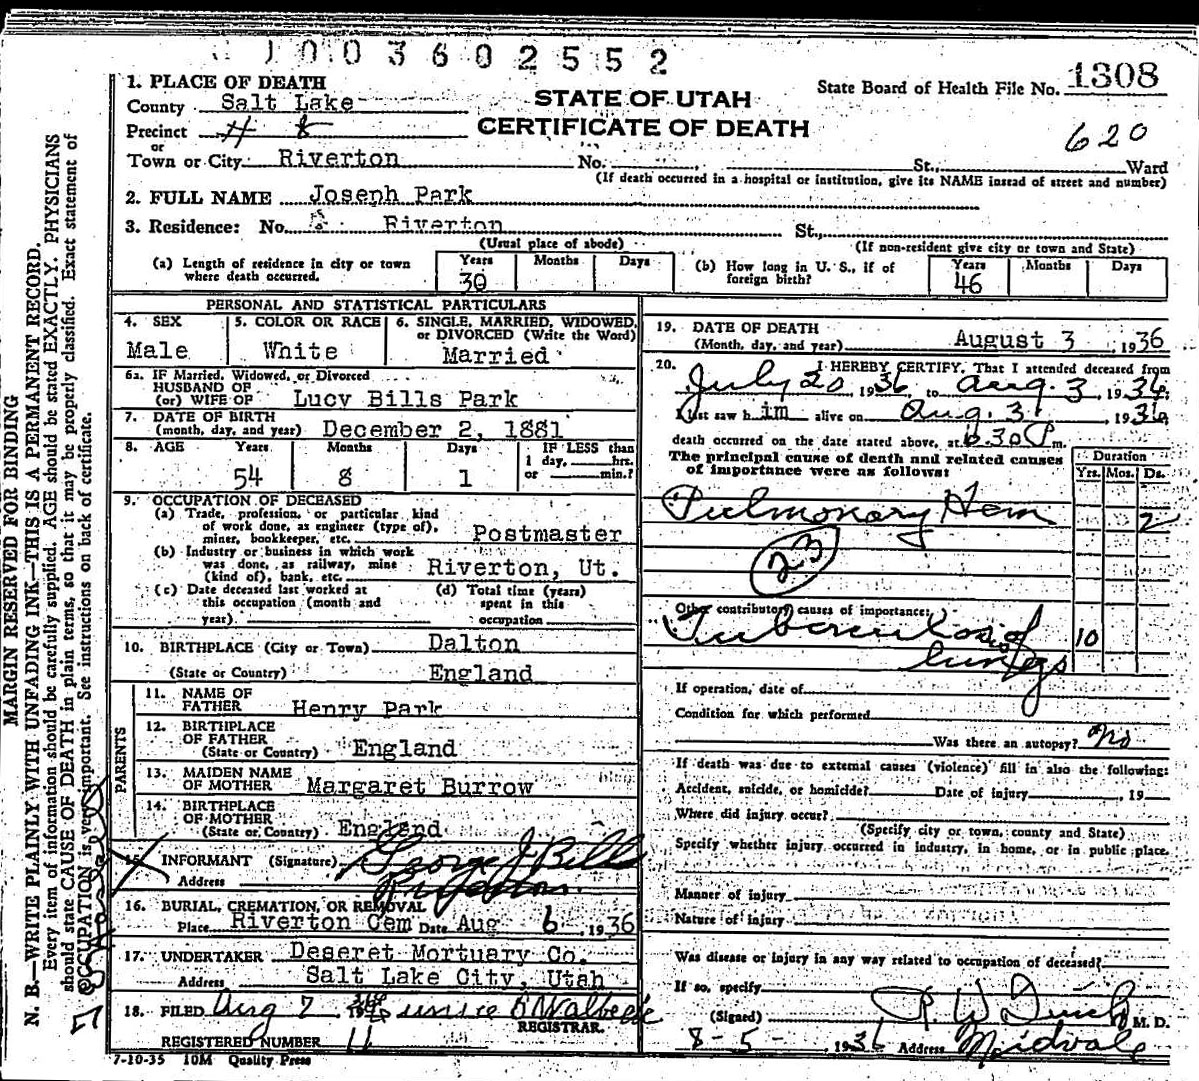 1003602552
1. PLACE OF DEATH
County Salt Lake
STATE OF UTAH
State Board of Health File No. 1308
Precinct
CERTIFICATE OF DEATH
620
or
Town or City Riverton No. St., Ward
(If death occurred in a hospital or institution, give its NAME instead of street and number)
2. FULL NAME Joseph Park
3. Residence: No. Riverton St.,
(Usual place of abode) (If non-resident give city or town and State)
(a) Length of residence in city or town where death occurred. Years 30 Months Days
(b) How long in U. S., if of foreign birth? Years 46 Months Days
PERSONAL AND STATISTICAL PARTICULARS
4. SEX Male
5. COLOR OR RACE White
6. SINGLE, MARRIED, WIDOWED, or DIVORCED (Write the Word) Married
6a. IF Married, Widowed, or Divorced
HUSBAND OF
(or) WIFE OF Lucy Bills Park
7. DATE OF BIRTH
(month, day, and year) December 2, 1881
8. AGE Years 54 Months 8 Days 1 IF LESS than 1 day, hrs. or min.?
9. OCCUPATION OF DECEASED
(a) Trade, profession, or particular kind of work done, as engineer (type of), miner, bookkeeper, etc. Postmaster
(b) Industry or business in which work was done, as railway, mine (kind of), bank, etc. Riverton, Ut.
(c) Date deceased last worked at this occupation (month and year)
(d) Total time (years) spent in this occupation
10. BIRTHPLACE (City or Town) Dalton
(State or Country) England
PARENTS
11. NAME OF FATHER Henry Park
12. BIRTHPLACE OF FATHER
(State or Country) England
13. MAIDEN NAME OF MOTHER Margaret Burrow
14. BIRTHPLACE OF MOTHER
(State or Country) England
15. INFORMANT (Signature) George J Bills
Address Riverton.
16. BURIAL, CREMATION, OR REMOVAL
Place Riverton Cem Date Aug 6, 1936
17. UNDERTAKER Deseret Mortuary Co.
Address Salt Lake City, Utah
18. FILED Aug 7
REGISTRAR.
REGISTERED NUMBER 11
7-10-35 10M Quality Press
19. DATE OF DEATH
(Month, day, and year) August 3, 1936
20. I HEREBY CERTIFY, That I attended deceased from
July 20 1936, to Aug. 3, 1936,
I last saw h im alive on Aug. 3, 1936,
death occurred on the date stated above, at 6.30 P m.
The principal cause of death and related causes of importance were as follows:
Duration
Yrs. Mos. Ds.
Pulmonary Hem 2
23
Other contributory causes of importance:
Tuberculosis of 10
lungs
If operation, date of
Condition for which performed
Was there an autopsy? no
If death was due to external causes (violence) fill in also the following:
Accident, suicide, or homicide? Date of injury , 19
Where did injury occur?
(Specify city or town, county and State)
Specify whether injury occurred in industry, in home, or in public place.
Manner of injury
Nature of injury
Was disease or injury in any way related to occupation of deceased?
If so, specify
(Signed) M. D.
8-5- , 1936 Address Midvale
MARGIN RESERVED FOR BINDING
N. B.—WRITE PLAINLY WITH UNFADING INK—THIS IS A PERMANENT RECORD.
Every item of information should be carefully supplied. AGE should be stated EXACTLY. PHYSICIANS
should state CAUSE OF DEATH in plain terms, so that it may be properly classified. Exact statement of
OCCUPATION is very important. See instructions on back of certificate.